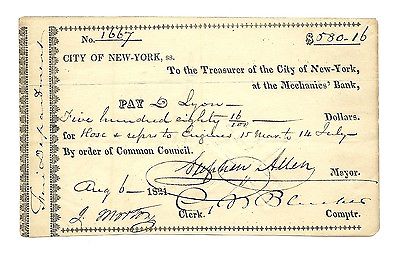 No. 1667 $580-16
CITY OF NEW-YORK, ss.
To the Treasurer of the City of New-York,
at the Mechanics' Bank,
PAY D Lyon
Five hundred eighty 16/100 Dollars.
for Hose & reprs to Engines, 15 Mar to 14 July
By order of Common Council.
Stephen Allen Mayor.
Aug 6 1821
J. Morton Clerk. Comptr.
Fire Department